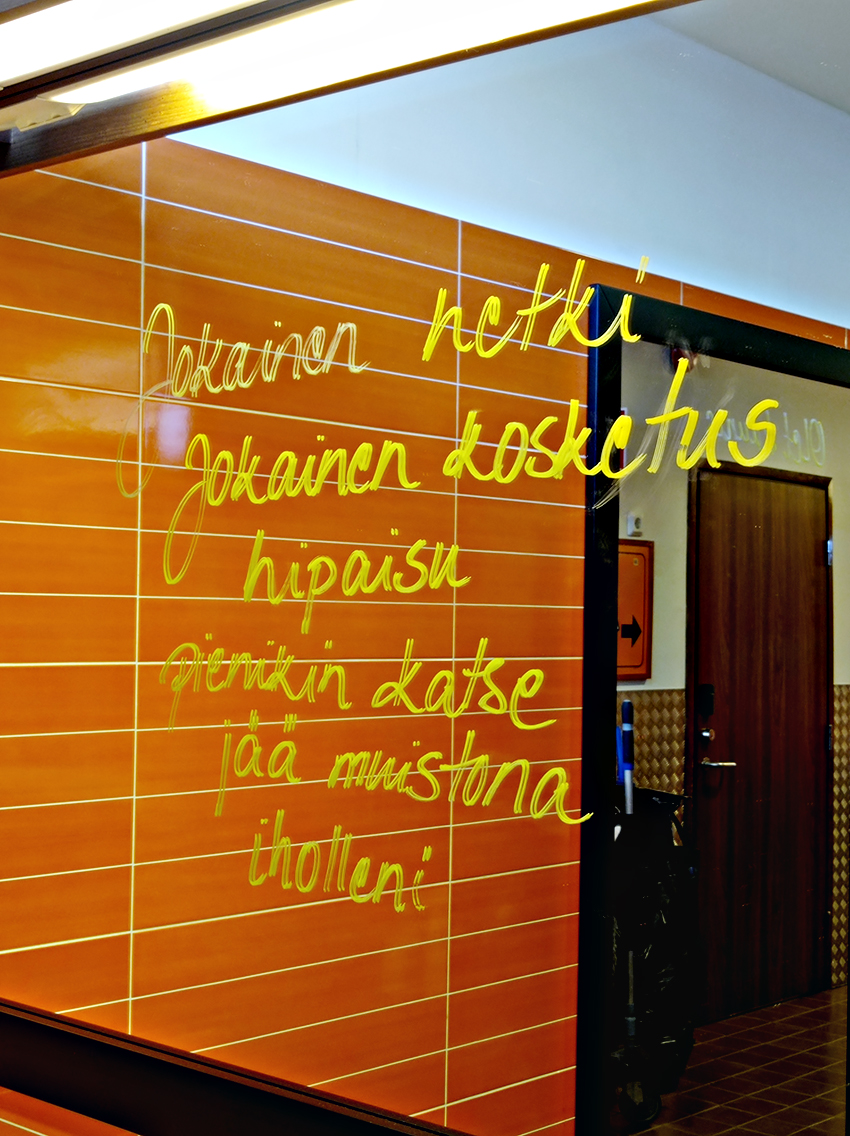 Jokainen hetki
Jokainen kosketus
hipaisu
pienikin katse
jää muistona
iholleni